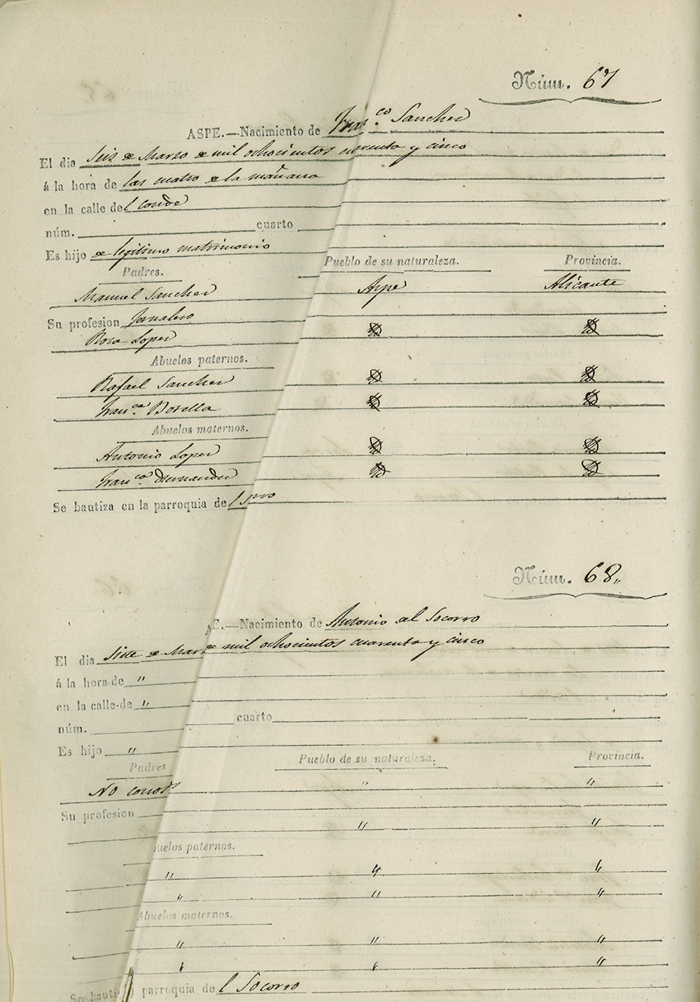 Núm. 67
ASPE.—Nacimiento de Fran.co Sancher
El dia Seis de Marzo de mil ochocientos cuarenta y cinco
á la hora de las cuatro de la mañana
en la calle del conde
núm. cuarto
Es hijo de legitimo matrimonio
Padres. Pueblo de su naturaleza. Provincia.
Manuel Sancher Aspe Alicante
Su profesion Jornalero
Rosa Loper
Abuelos paternos.
Rafael Sancher
Fran.ca Botella
Abuelos maternos.
Antonio Loper
Fran.ca Hernander
Se bautiza en la parroquia de
Núm. 68.
E.—Nacimiento de Antonio del Socorro
El dia Siete de Marzo de mil ochocientos cuarenta y cinco
á la hora de "
en la calle de "
núm. cuarto
Es hijo "
Padres Pueblo de su naturaleza. Provincia.
No conocds " "
Su profesion
" "
uelos paternos.
" " "
" " "
Abuelos maternos.
" " "
" " "
Se bautiz parroquia del Socorro